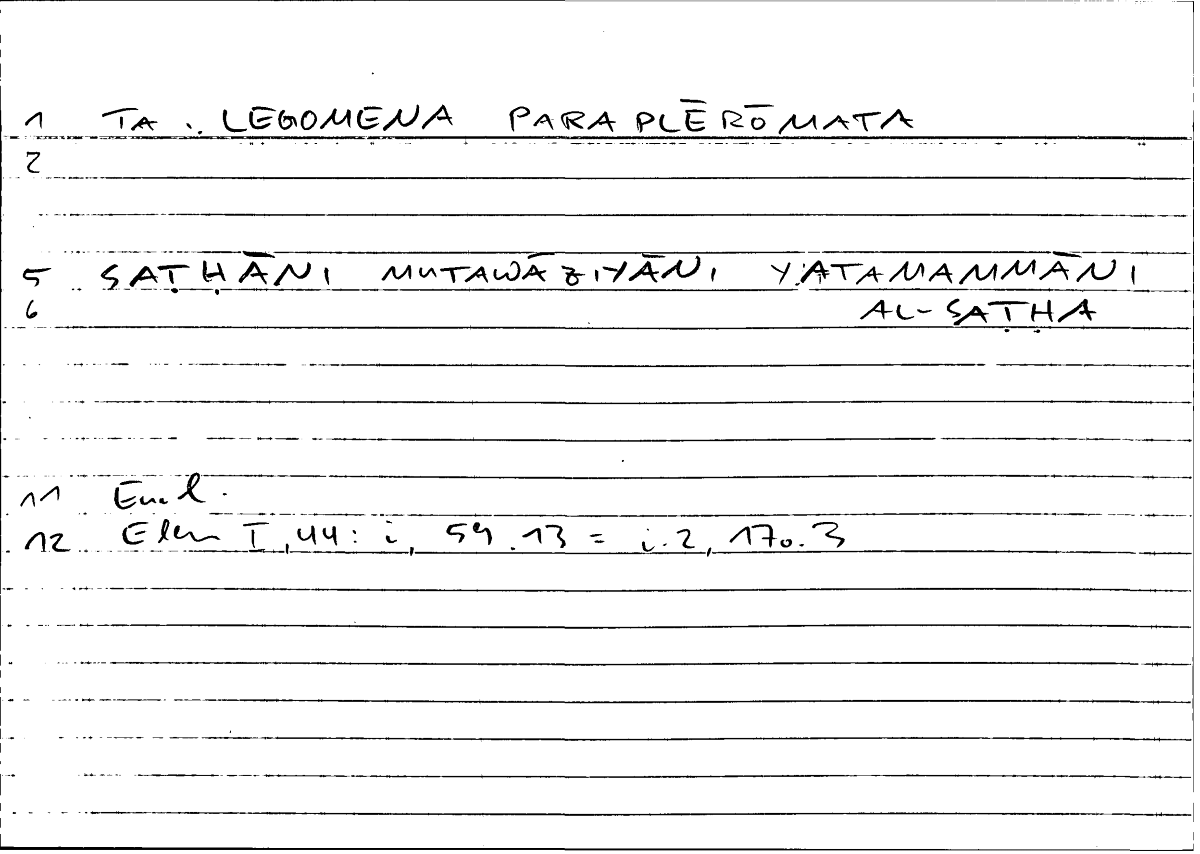 1 TA LEGOMENA PARAPLĒRŌMATA
2
5 SAṬḤĀNI MUTAWĀZIYĀNI YATAMAMMĀNI
6 AL-SAṬḤA
11 Eucl.
12 Elem I, 44: i, 54.13 = i.2, 170.3